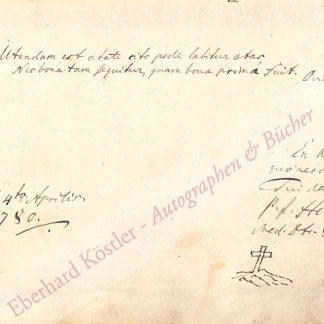 Utendum est ætate cito pede labitur ætas
Nec bona tam sequitur, quam bona prima fuit. Ovi
En
4to Aprilis
1780.
Tui
p. f.
Med. Dr.
Eberhard Köstler - Autographen & Bücher